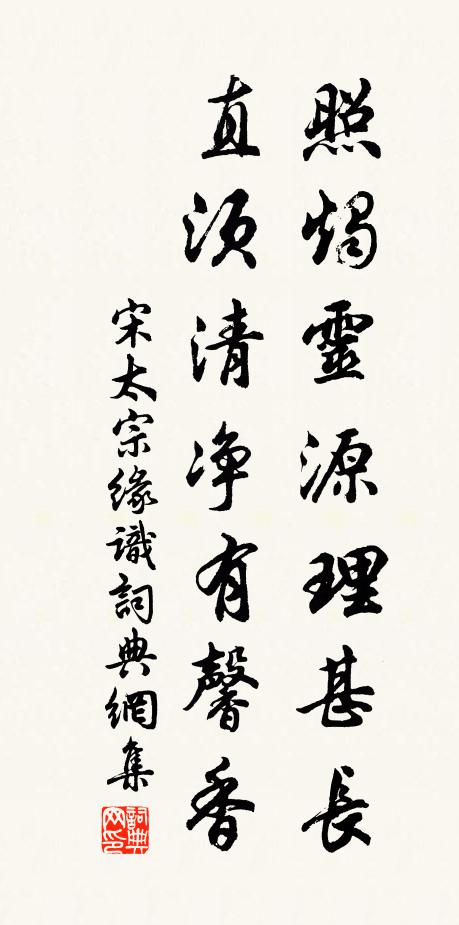 照烛靈源理甚長
直須清净有馨香
宋太宗緣識詞典網集
詞典网印